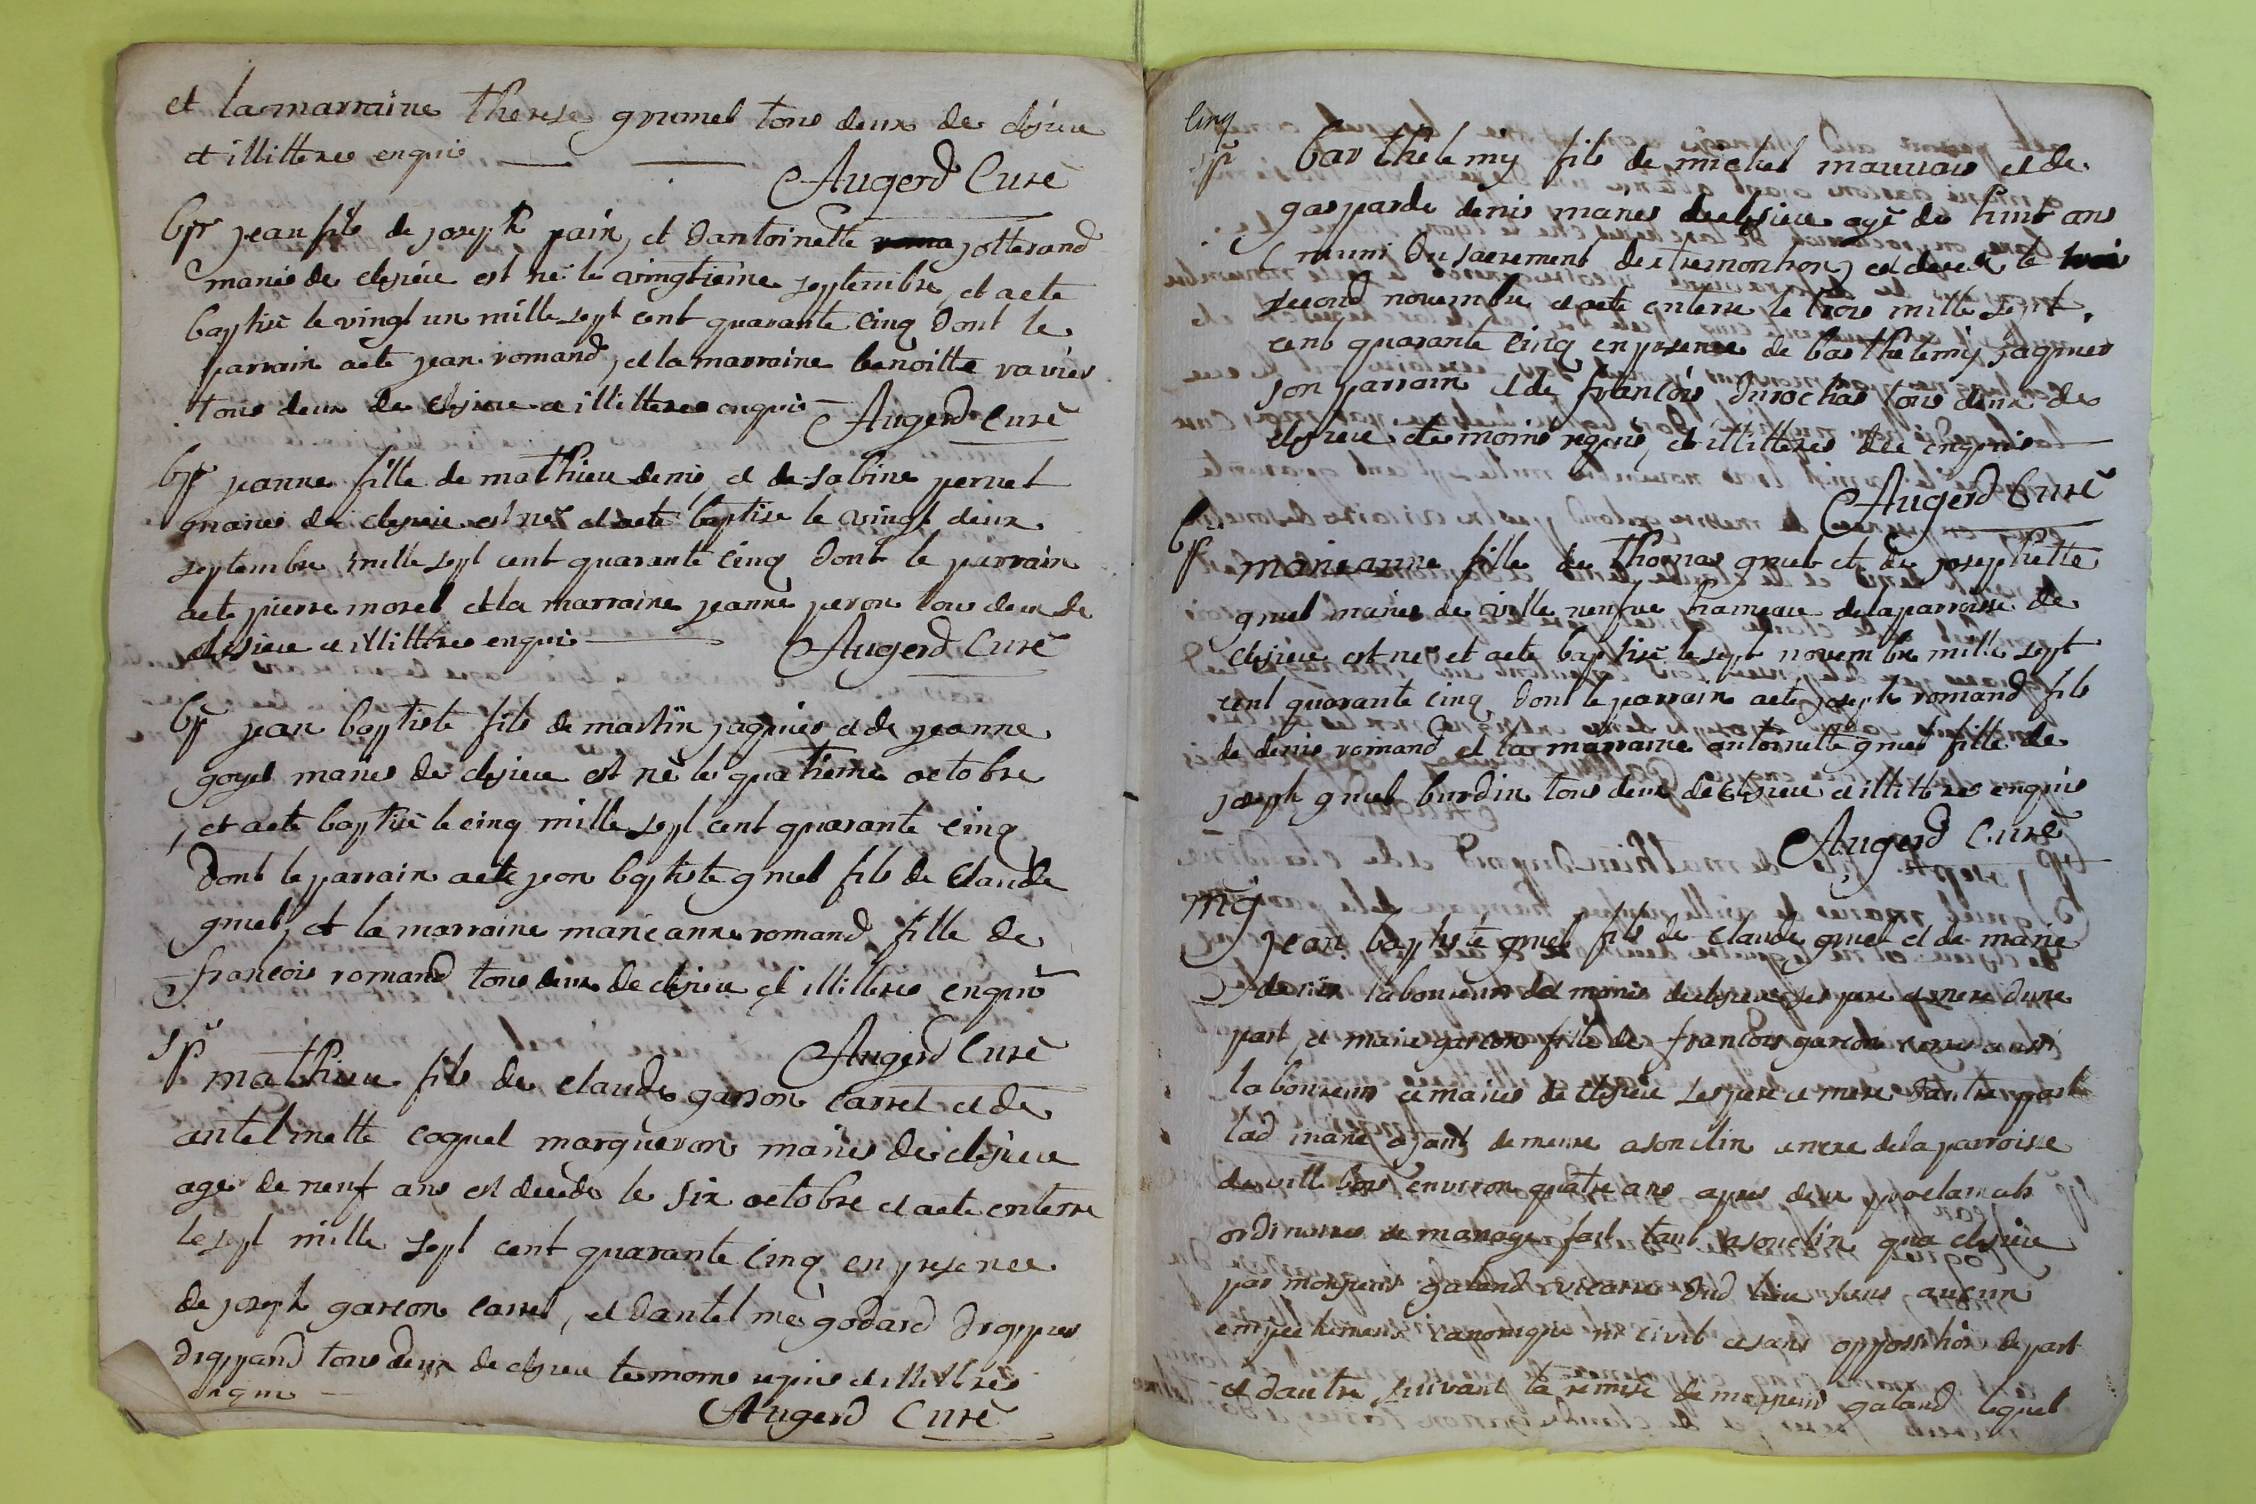 et la marraine therese grumel tous deux de clesieu
et illittres enquis
Augerd Curé
bp jean fils de joseph pain, et dantoinette jotterand
mariés de clesieu est né le vingtieme septembre, et a ete
baptisé le vingt un mille sept cent quarante cinq dont le
parrain a ete jean romand, et la marraine benoitte ravier
tous deux de clesieu et illittres enquis Augerd Curé
bp jeanne fille de mathieu denis et de sabine pernet
mariés de clesieu est neé et a eté baptisé le vingt deux
septembre mille sept cent quarante cinq dont le parrain
a ete pierre morel et la marraine jeanne peron tous deux de
clesieu et illittres enquis Augerd Curé
bp jean baptiste fils de martin jaquier et de jeanne
goyet mariés de clesieu est né le quatrieme octobre
, et a ete baptisé le cinq mille sept cent quarante cinq
dont le parrain a ete jean baptiste gruel fils de claude
gruel, et la marraine marie anne romand fille de
francois romand tous deux de clesieu et illittres enquis
Augerd Curé
sp mathieu fils de claude garson carrel et de
antelmette coquet margueron mariés de clesieu
agé de neuf ans est decedé le six octobre et a ete enterré
le sept mille sept cent quarante cinq en presence
de joseph garcon carrel, et dantelme godard
tous deux de clesieu temoins requis et illittres
enquis
Augerd Curé
cinq
sp barthelemy fils de michel mauvais et de
gasparde denis mariés de clesieu agé de huit ans
( muni du sacrement dextremontion ) est decedé le
second novembre et a ete enterré le trois mille sept
cent quarante cinq en presence de barthelemy jaquier
son parrain et de françois durochas tous deux de
clesieu temoins requis, et illittres enquis
Augerd Curé
bp marie anne fille de thomas gruel et de josephette
gruel mariés de ville neufve hameau de la parroisse de
clesieu est neé et a ete baptisé le sept novembre mille sept
cent quarante cinq, dont le parrain a eté joseph romand fils
de denis romand et la marraine antoinette gruel fille de
joseph gruel burdin tous deux de clesieu et illittres enquis
Augerd Curé
mg
jean baptiste gruel fils de claude gruel et de marie
denis laboureurs et mariés de clesieu ses pere et mere dune
part, et marie garcon fille de françois garcon aussi
laboureurs et mariés de clesieu ses pere et mere dautre part
lad marie ayant demeuré a sonclin annexe de la parroisse
de environ quatre ans apres deux proclamats
ordinaires de mariage fait tant a sonclin qua clesieu
par monsieur galand vicaire dud lieu sans aucun
empechement canonique ni civil et sans oppossition de part
et dautre suivant la remise de monsieur galand lequel